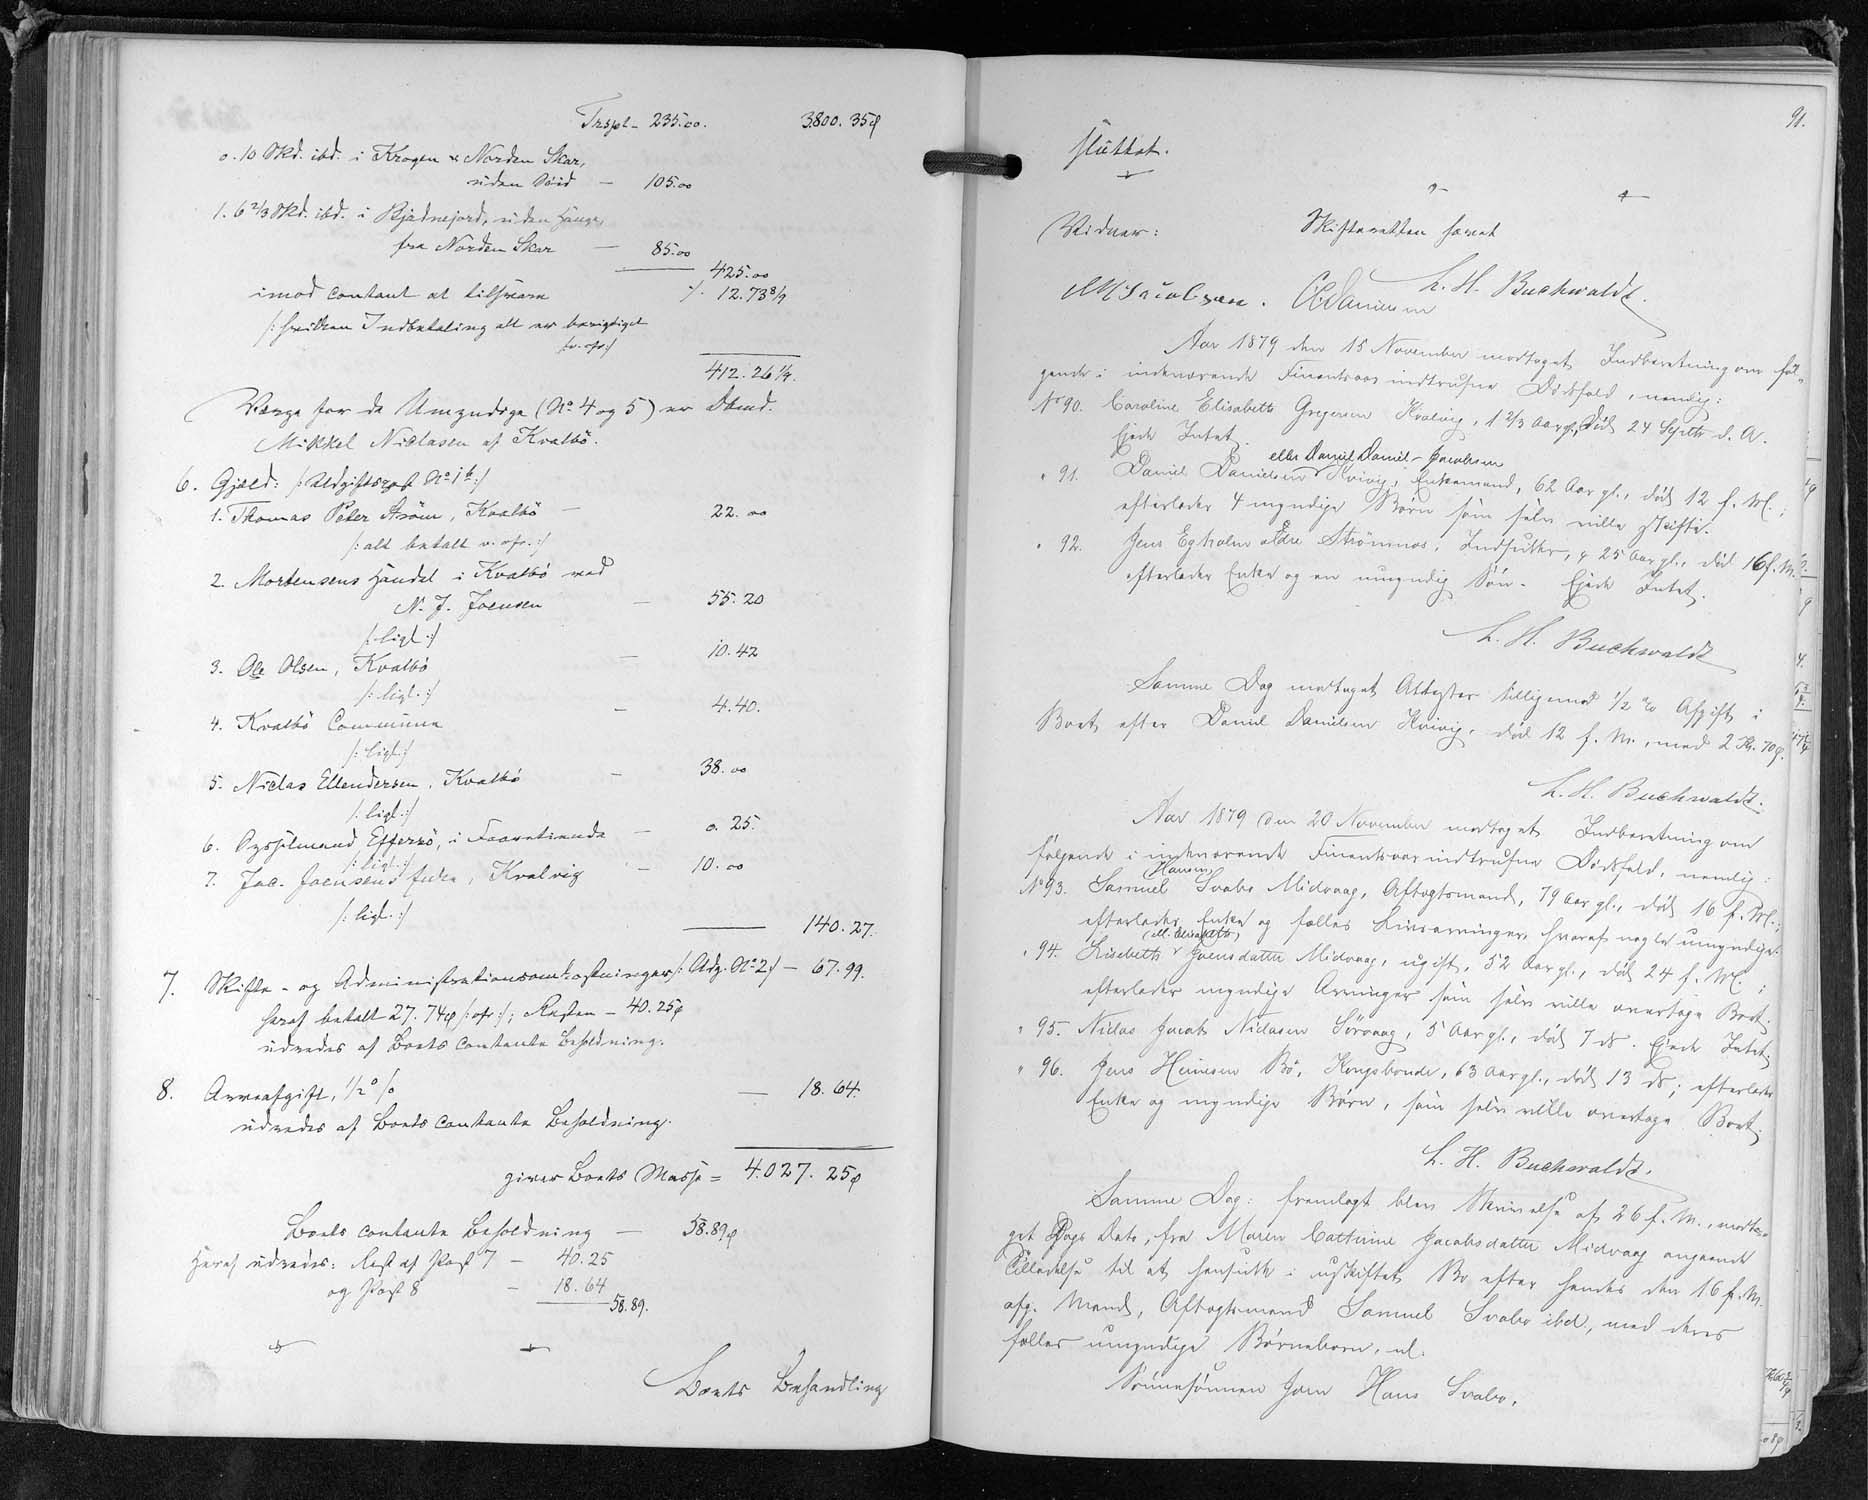 Trspt – 235.00. 3800. 35ø
0. 10 Skd. ibd. i Krogen v. Norden Skar,
uden Söid – 105.00
1. 6 2/3 Skd. ibd. i Bjadnejord, uden Hauge,
fra Norden Skar – 85.00
425.00
imod contant at tilsvare ./. 12.73 8/9
/: hvilken Indbetaling alt er berigtiget
v. ofr :/
412. 26 1/9.
Værge for de Umyndige (No 4 og 5) er Dbmd.
Mikkel Niclasen af Kvalbö.
6. Gjæld: /: Udgiftspost No 1 b :/
1. Thomas Peter Ström, Kvalbö – 22. 00
/: alt betalt v. ofr. :/
2. Mortensens Handel i Kvalbö ved
N. J. Joensen – 55. 20
/: ligl. :/
3. Ole Olsen, Kvalbö – 10. 42
/: ligl. :/
4. Kvalbö Commune – 4. 40.
/: ligl :/
5. Niclas Ellendersen, Kvalbö – 38. 00
/: ligl :/
6. Sysselmand Effersö, i Faaretiende – 0. 25.
/: ligl. :/
7. Jac. Joensens Enke, Kvalvig – 10. 00
/: ligl. :/
140. 27.
7. Skifte- og Administrationsomkostninger /: Udg. No 2 :/ – 67. 99.
heraf betalt 27. 74ø /: ofr :/; Resten – 40. 25ø
udredes af Boets contante Beholdning.
8. Arveafgift, 1/2 % – 18. 64.
udredes af Boets contante Beholdning.
giver Boets Masse = 4.027. 25ø
Boets contante Beholdning – 58. 89ø
Heraf udredes: Rest af Post 7 – 40. 25
og Post 8 – 18. 64
58. 89.
Boets Behandling
91.
sluttet.
Vidner: Skifteretten hævet
L. H. Buchwaldt.
MMJacobsen. Danielsen
Aar 1879 den 15 November modtaget Indberetning om föl-
gende i indeværende Finantsaar indtrufne Dödsfald, nemlig:
No 90. Caroline Elisabeth Gregersen Kvalvig, 1 2/3 Aar gl., död 24 Septbr d. A.
Ejede Intet.
eller Daniel Daniel-Jacobsen
" 91. Daniel Danielsen Kvivig, Enkemand, 62 Aar gl., död 12 f. M.;
efterlader 4 myndige Börn som selv ville skifte.
" 92. Jens Egholm ældre Strömnæs, Indsidder, 25 Aar gl., död 16 f. M.
efterlader Enke og en umyndig Sön. Ejede Intet.
L. H. Buchwaldt
Samme Dag modtaget Attester tilligemed 1/2 % Afgift i
Boet efter Daniel Danielsen Kvivig, död 12 f. M., med 2 Kr. 70ø.
L. H. Buchwaldt.
Aar 1879 den 20 November modtaget Indberetning om
fölgende i indeværende Finantsaar indtrufne Dödsfald, nemlig:
Hansen
No 93. Samuel Svabo Midvaag, Aftægtsmand, 79 Aar gl., död 16 f. M.;
efterlader Enke og fælles Livsarvinger, hvoraf nogle umyndige.
(ell. Elisabeth)
" 94. Lisebeth Joensdatter Midvaag, ugift, 52 Aar gl., död 24 f. M.;
efterlader myndige Arvinger som selv ville overtage Boet.
" 95. Niclas Jacob Niclasen Sörvaag, 5 Aar gl., död 7 ds. Ejede Intet
" 96. Jens Heinesen Bö, Kongsbonde, 63 Aar gl., död 13 ds; efterlader
Enke og myndige Börn, som selv ville overtage Boet.
L. H. Buchwaldt.
Samme Dag: fremlagt blev Skrivelse af 26 f. M., modta-
get Dags Dato, fra Maren Cathrine Jacobsdatter Midvaag angaaende
Tilladelse til at hensidde i uskiftet Bo efter hendes den 16 f. M.
afg. Mand, Aftægtsmand Samuel Svabo ibd., med deres
fælles umyndige Börnebörn, nl.
Sönnesönnen Joen Hans Svabo,